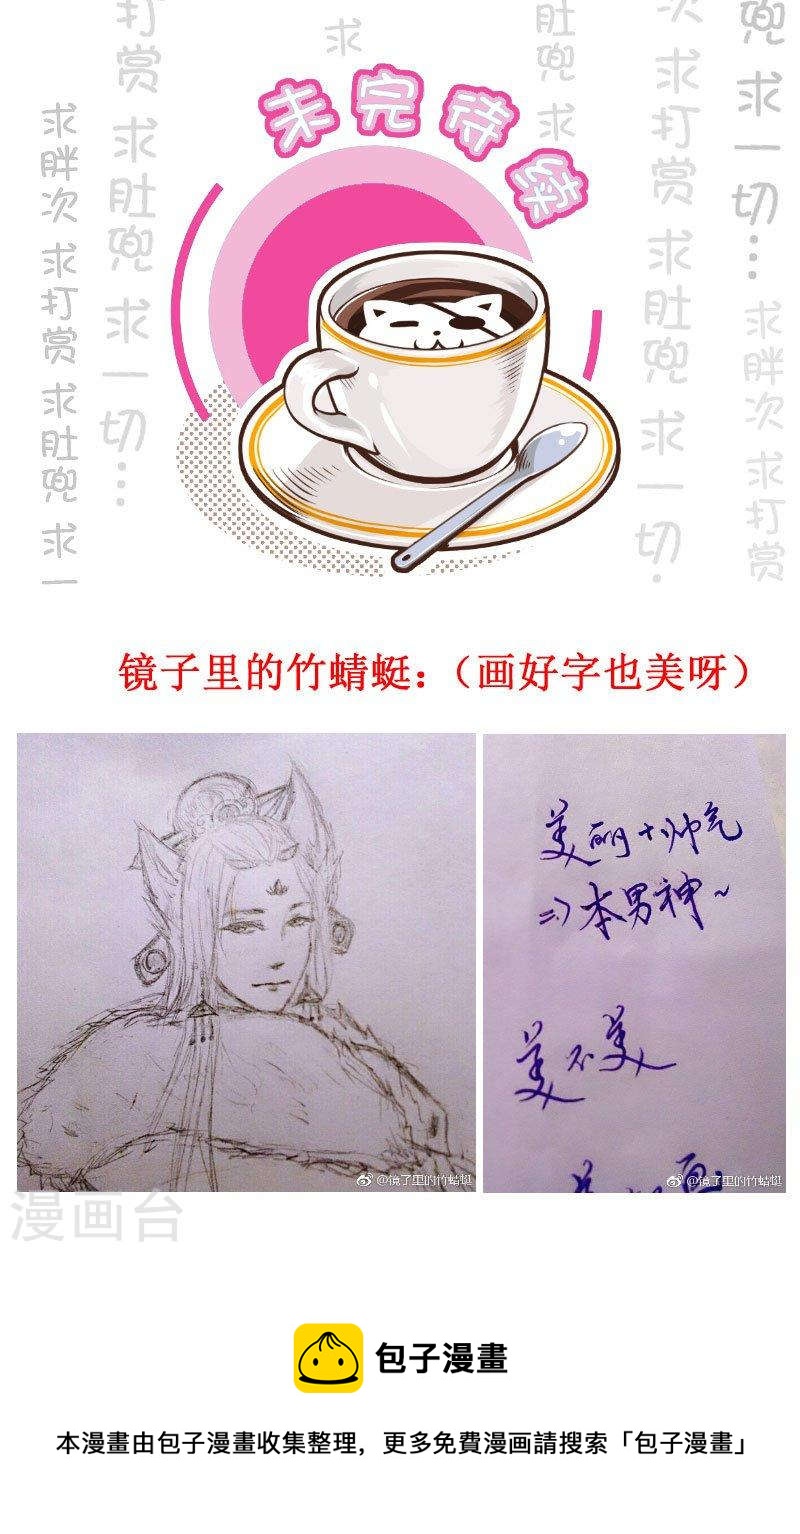 求胖次 求打赏 求肚兜 求一
打赏 求肚兜 求一切…
求
肚兜 求
次 求打赏 求肚兜 求一切.
兜 求一切…
求胖次 求打赏
未完待续
镜子里的竹蜻蜓：（画好字也美呀）
美丽+帅气
=>本男神~
美不美
@镜子里的竹蜻蜓
@镜子里的竹蜻蜓
漫画台
包子漫畫
本漫畫由包子漫畫收集整理，更多免費漫画請搜索「包子漫畫」